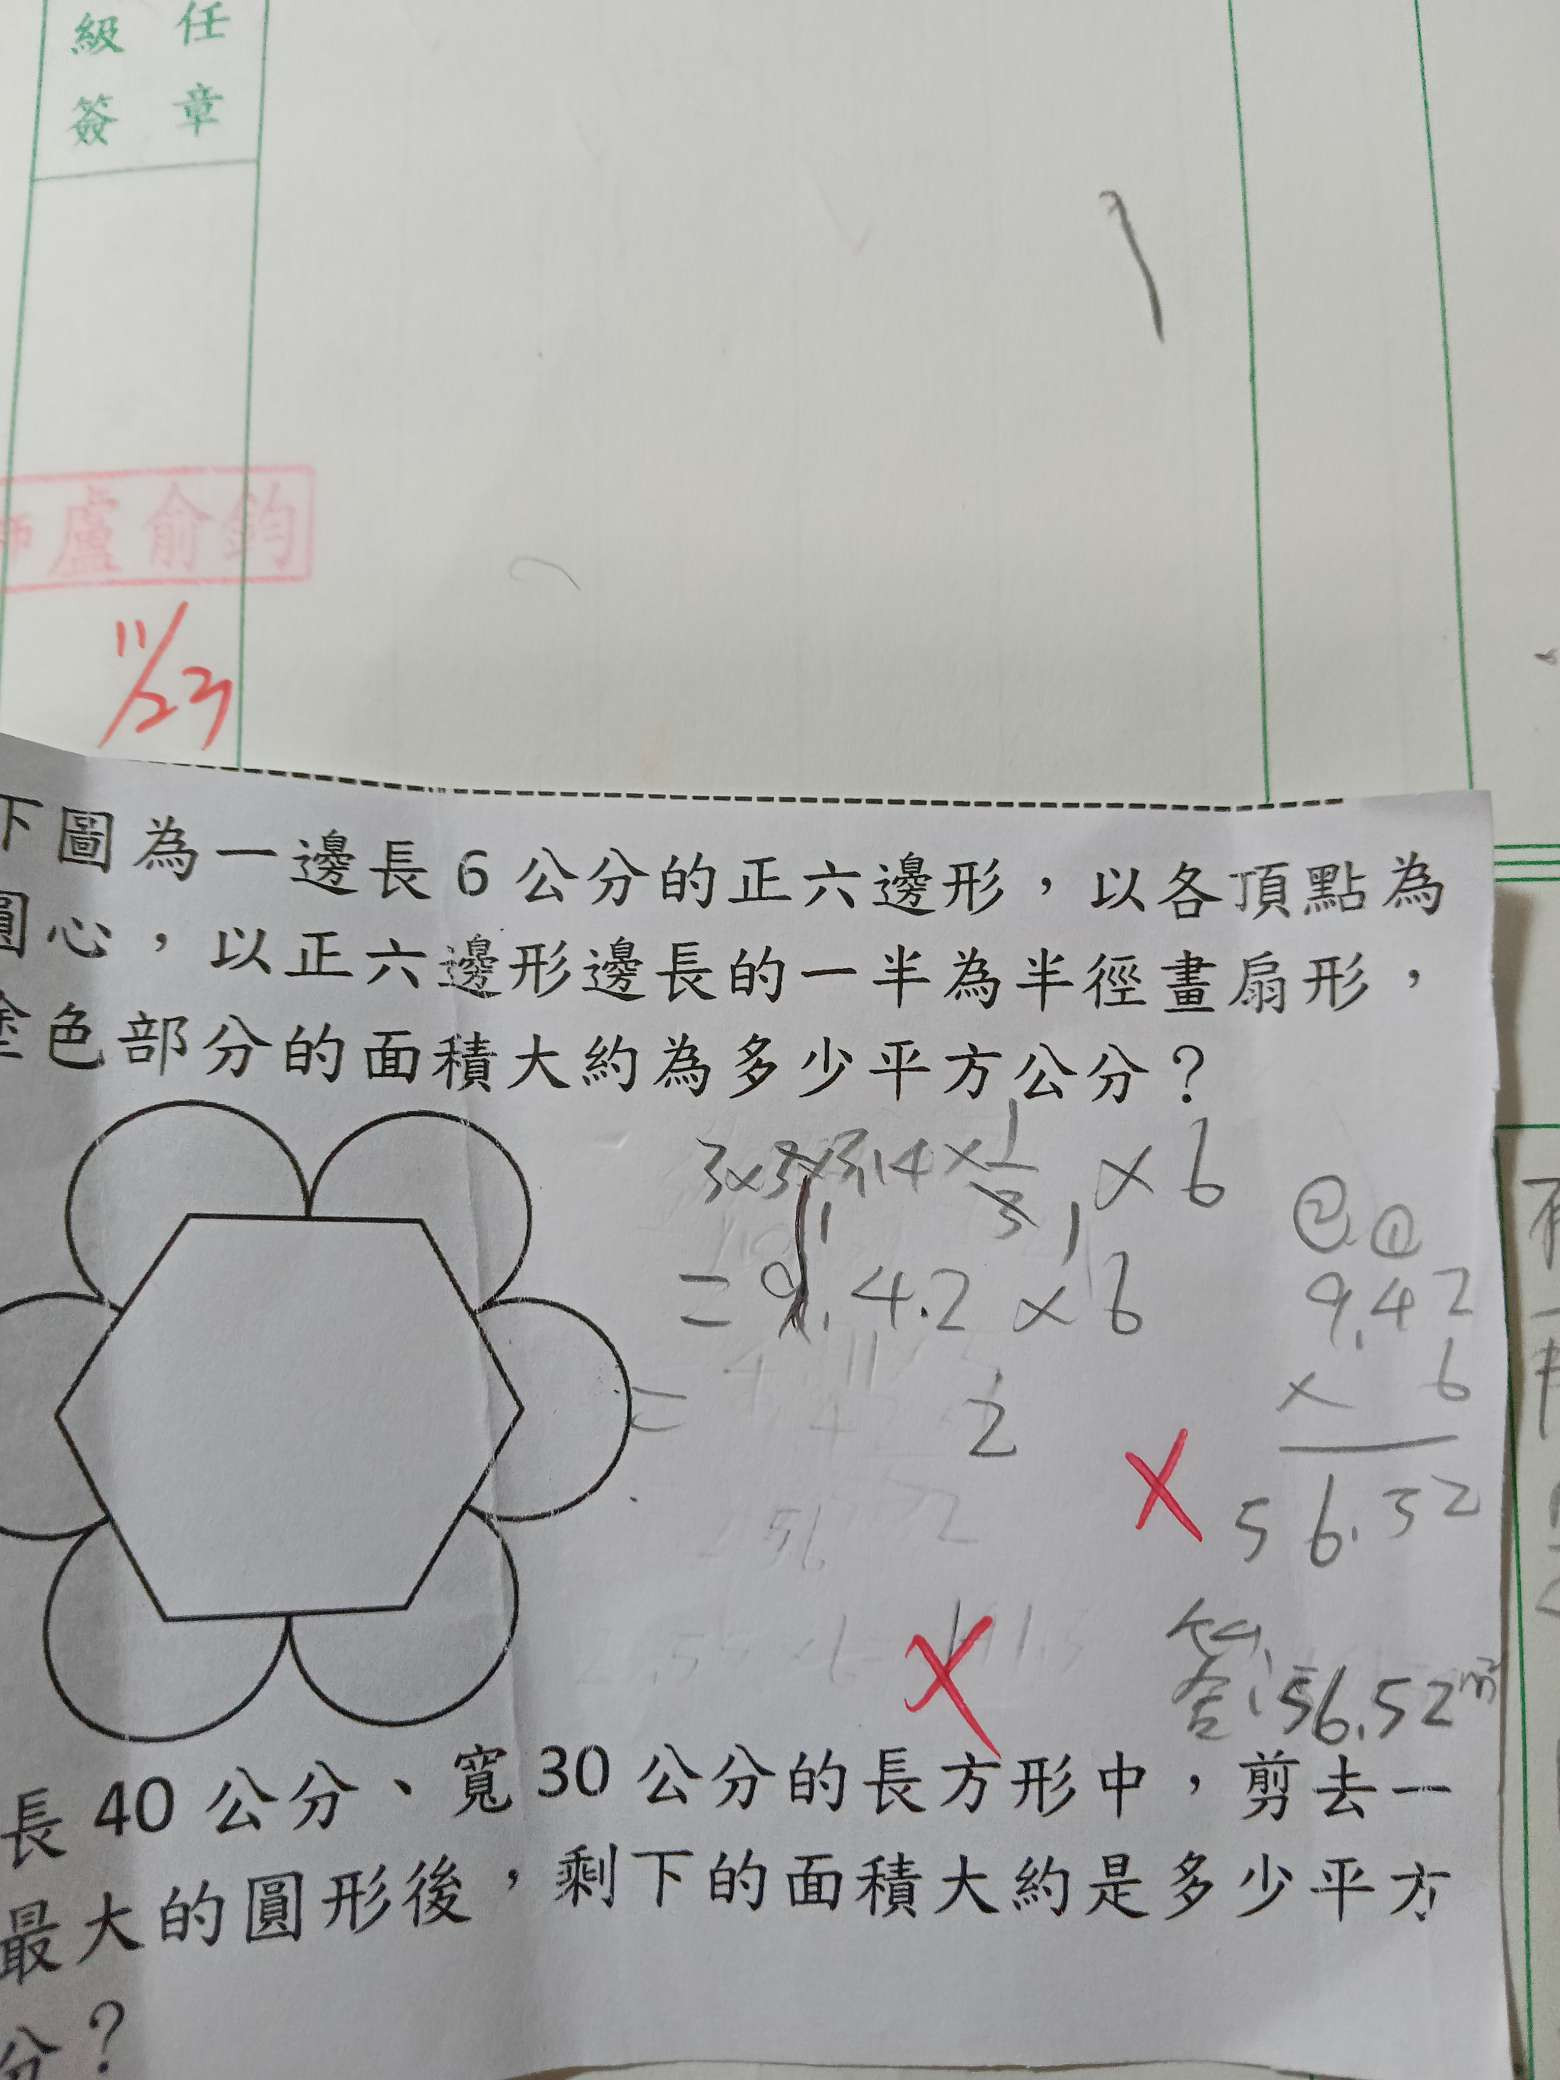 級 任
簽 章
師盧俞鈞
11/23
下圖為一邊長6公分的正六邊形,以各頂點為
圓心,以正六邊形邊長的一半為半徑畫扇形,
塗色部分的面積大約為多少平方公分?
3×3×3.14×1/3×6
=9.42×6
=
2
② ①
9.42
× 6
56.52
答:56.52m²
長40公分、寬30公分的長方形中,剪去一
最大的圓形後,剩下的面積大約是多少平方
分?